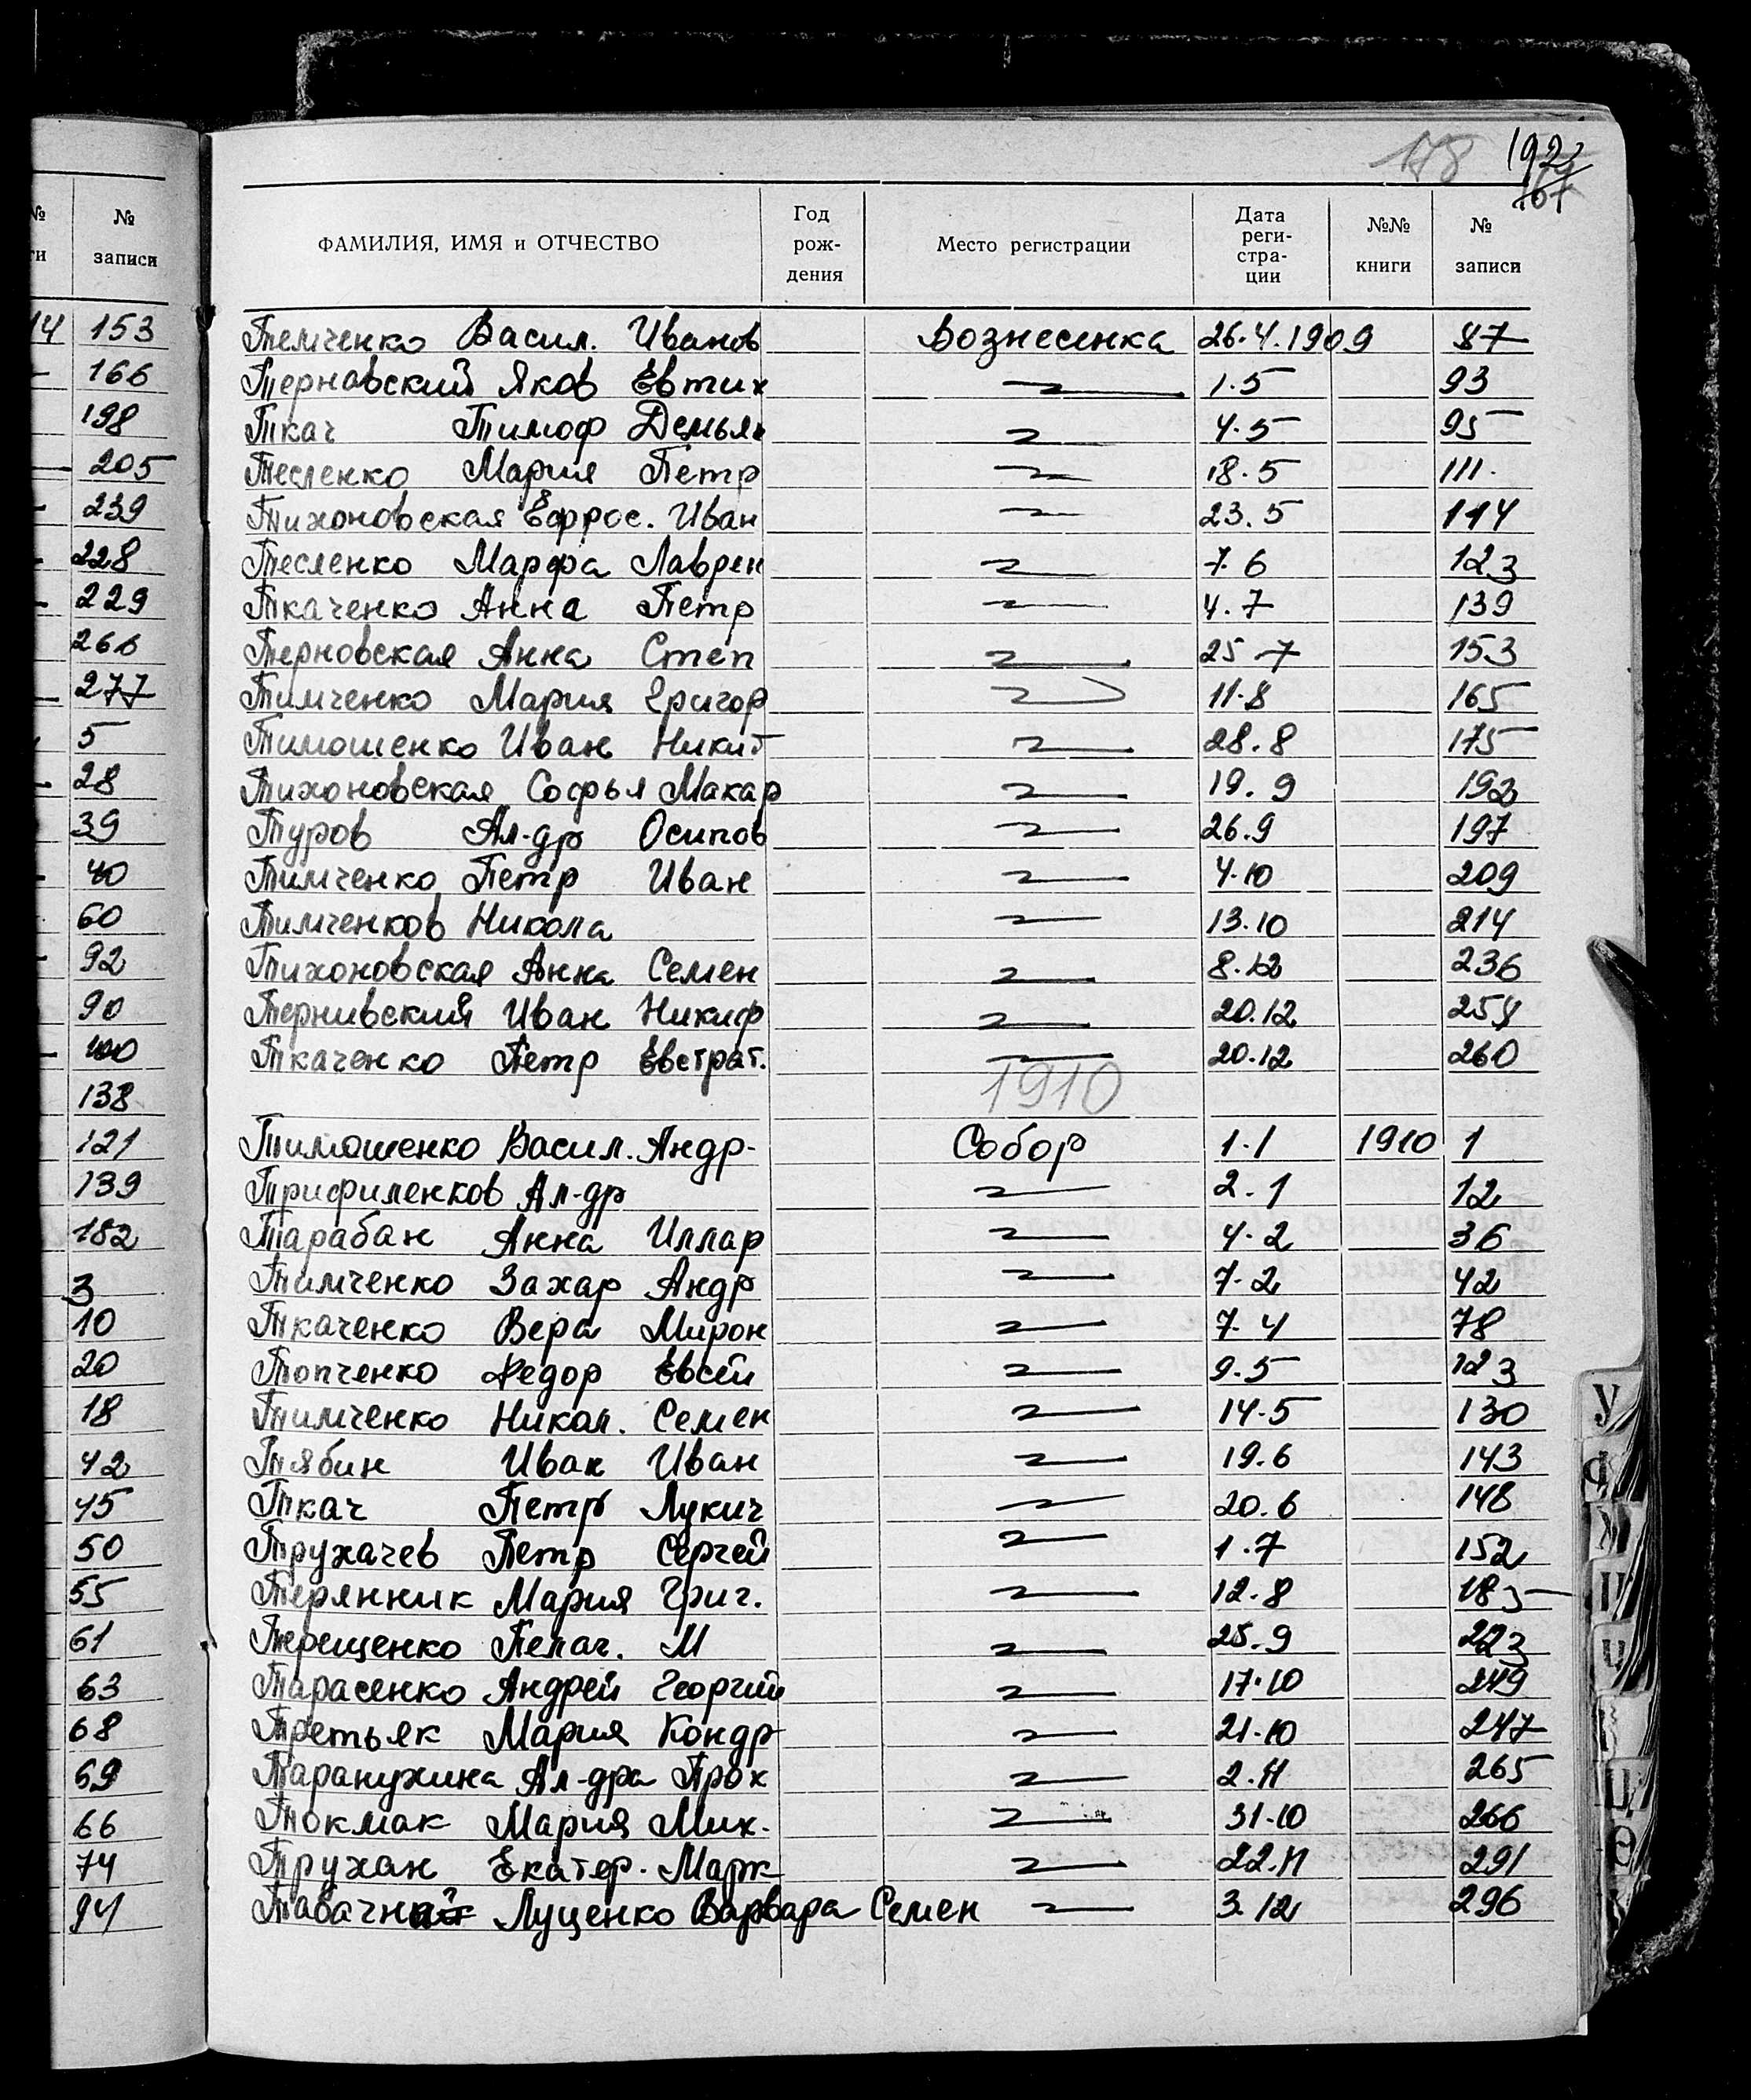 178 192
167
№ №
ги записи
14 153
166
198
205
239
228
229
266
277
5
28
39
40
60
92
90
100
138
121
139
182
3
10
20
18
42
45
50
55
61
63
68
69
66
74
94
ФАМИЛИЯ, ИМЯ и ОТЧЕСТВО Год рож-дения Место регистрации Дата реги-стра-ции №№ книги № записи
Темченко Васил. Иванов Вознесенка 26.4.1909 87
Терновский Яков Евтих 1.5 93
Ткач Тимоф Демьян 4.5 95
Тесленко Мария Петр 18.5 111.
Тихоновская Ефрос. Иван 23.5 114
Тесленко Марфа Лаврен 7 6 123
Ткаченко Анна Петр 4.7 139
Терновская Анна Степ 25 7 153
Тимченко Мария Григор 11.8 165
Тимошенко Иван Никит 28.8 175
Тихоновская Софья Макар 19.9 192
Туров Ал-др Осипов 26.9 197
Тимченко Петр Иван 4.10 209
Тимченков Никола 13.10 214
Тихоновская Анна Семен 8.12 236
Тернивский Иван Никиф 20.12 258
Ткаченко Петр Евстрат. 20.12 260
1910
Тимошенко Васил. Андр- Собор 1.1 1910 1
Трифиленков Ал-др 2.1 12
Тарабан Анна Иллар 4.2 36
Тимченко Захар Андр 7.2 42
Ткаченко Вера Мирон 7.4 78
Топченко Федор Евсей 9.5 123
Тимченко Никол. Семен 14.5 130
Тябин Иван Иван 19.6 143
Ткач Петр Лукич 20.6 148
Трухачев Петр Сергей 1.7 152
Терянник Мария Григ. 12.8 185
Терещенко Пелаг. М 25.9 223
Тарасенко Андрей Георгий 17.10 249
Третьяк Мария Кондр 21.10 247
Таранухина Ал-дра Прох 2.11 265
Токмак Мария Мих. 31.10 266
Трухан Екатер. Марк 22.11 291
Луценко Варвара Семен 3.12 296
У
Ф
Х
Ц